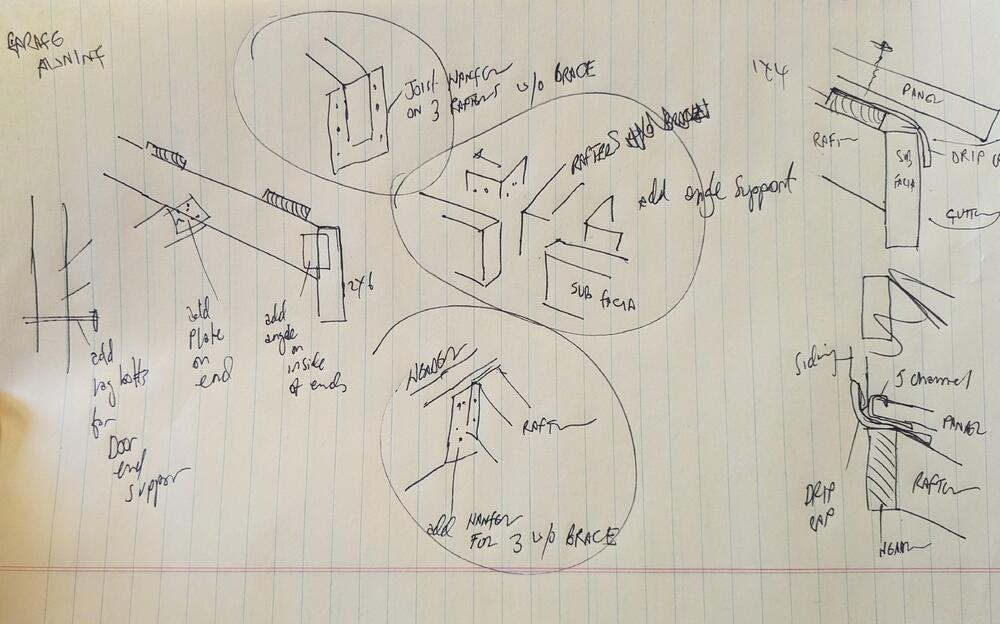 GARAGE
AWNING
JOIST HANGER
ON 3 RAFTERS W/O BRACE
RAFTERS
add angle support
SUB FACIA
2x6
add
lag bolts
for
Door
end
support
add
Plate
on
end
add
angle
on
inside
of ends
HEADER
RAFTER
add HANGER
FOR 3 W/O BRACE
1x4
PANEL
RAFT
DRIP
SUB
FACIA
GUTTER
Siding
J channel
PANEL
RAFTER
DRIP
CAP
HEADER